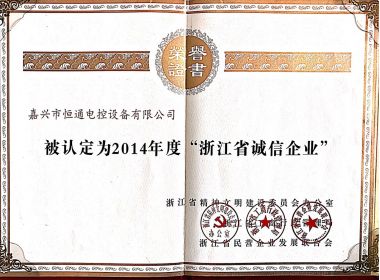 榮譽
證書
嘉兴市恒通电控设备有限公司
被认定为2014年度“浙江省诚信企业”
浙江省精神文明建设委员会办公室
浙江省民营企业发展联合会